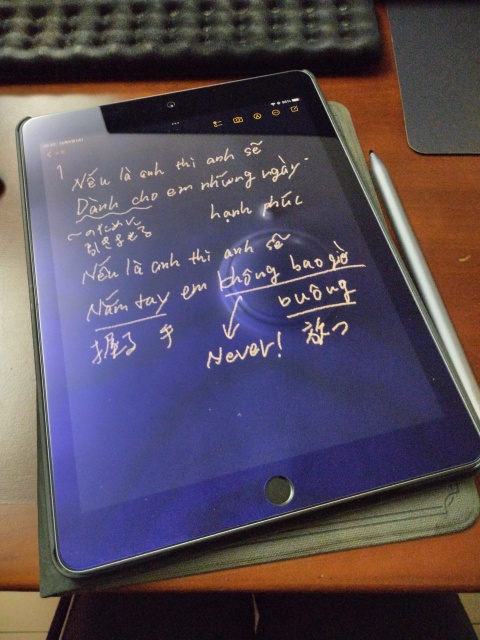 Nếu là anh thì anh sẽ
Dành cho em những ngày
〜のために
hạnh phúc
引きよせる
Nếu là anh thì anh sẽ
Nắm tay em không bao giờ
buông
握る 手
Never!
放つ